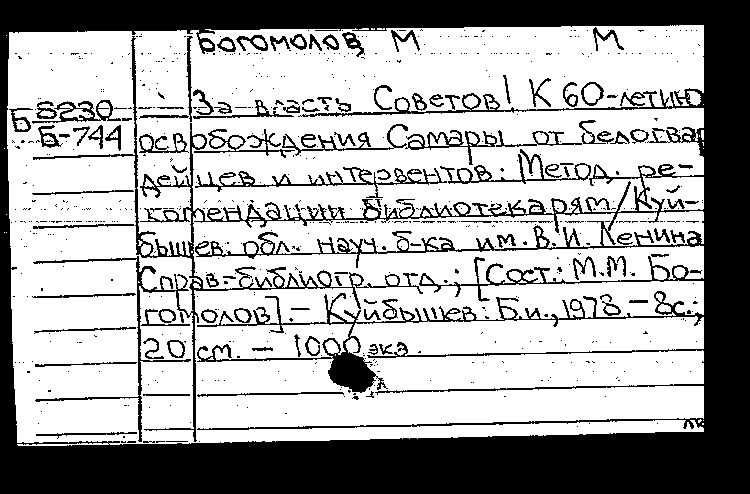 Богомолов М М
Б 8230
Б-744
За власть Советов! К 60-летию
освобождения Самары от белогвар
дейцев и интервентов: Метод. ре-
комендации библиотекарям/Куй-
бышев. обл. науч. б-ка им. В.И. Ленина
Справ.-библиогр. отд.; [Сост.: М.М. Бо-
гомолов]. - Куйбышев: Б.и., 1978. - 8с.;
20 см. - 1000 экз.